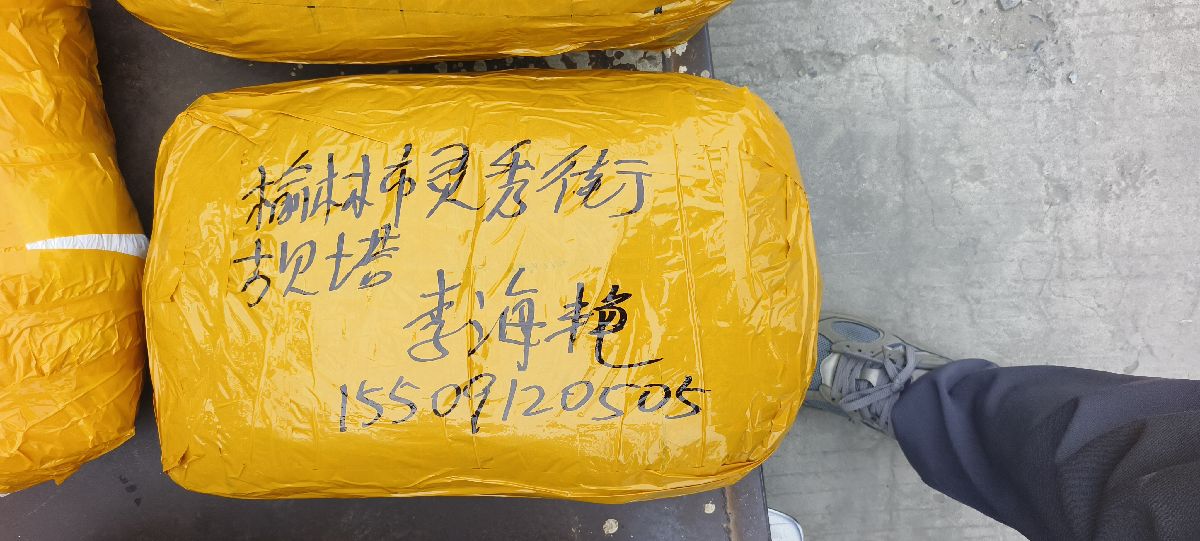 榆林市灵秀街
坝塔
李海艳
15509120505